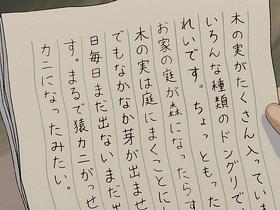 木の実がたくさん入っていま
いろんな種類のドングリで
れいです。ちょっともった
お家の庭が森になったらす
木の実は庭にまくことにし
でもなかなか芽が出ませ
日毎日まだ出ないまだ出
す。まるで猿カニがっせ
カニになったみたい。